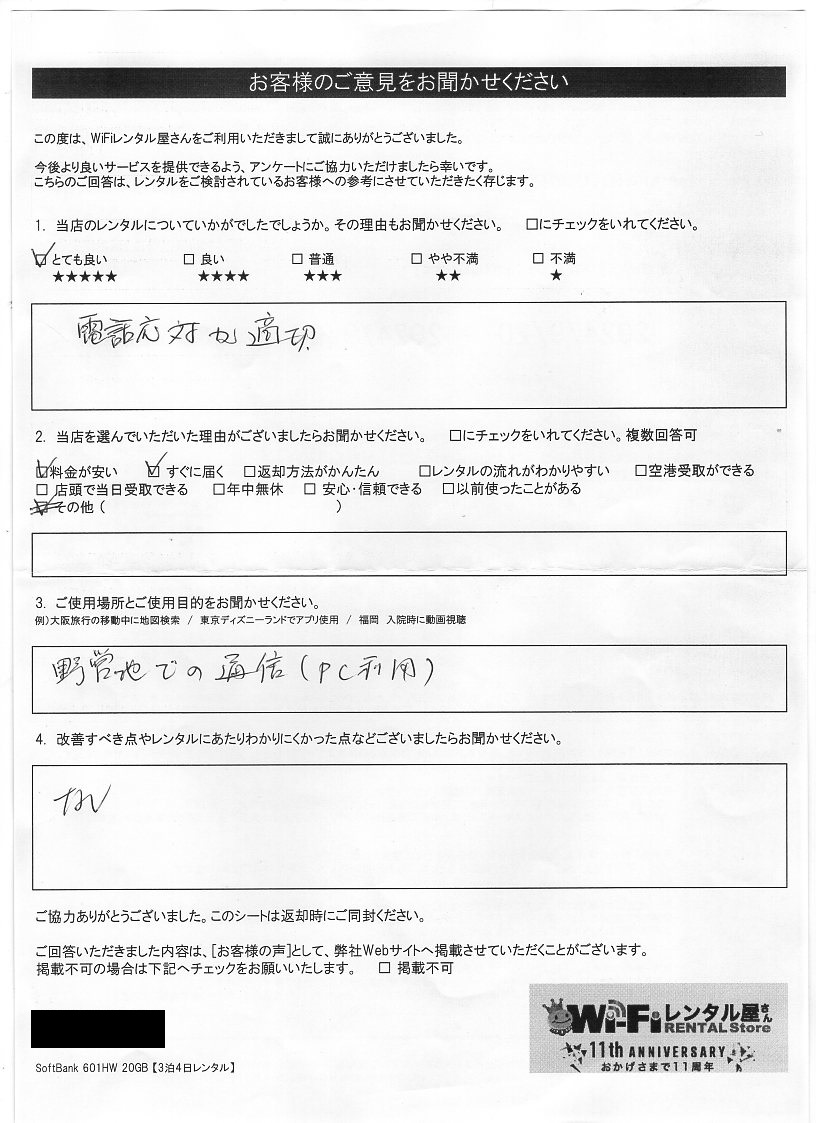 お客様のご意見をお聞かせください
この度は、WiFiレンタル屋さんをご利用いただきまして誠にありがとうございました。
今後より良いサービスを提供できるよう、アンケートにご協力いただけましたら幸いです。
こちらのご回答は、レンタルをご検討されているお客様への参考にさせていただきたく存じます。
1. 当店のレンタルについていかがでしたでしょうか。その理由もお聞かせください。 □にチェックをいれてください。
☑ とても良い □ 良い □ 普通 □ やや不満 □ 不満
★★★★★ ★★★★ ★★★ ★★ ★
電話応対が適切
2. 当店を選んでいただいた理由がございましたらお聞かせください。 □にチェックをいれてください。複数回答可
☑料金が安い ☑ すぐに届く □返却方法がかんたん □レンタルの流れがわかりやすい □空港受取ができる
□ 店頭で当日受取できる □年中無休 □ 安心・信頼できる □以前使ったことがある
☑その他 ( )
3. ご使用場所とご使用目的をお聞かせください。
例)大阪旅行の移動中に地図検索 / 東京ディズニーランドでアプリ使用 / 福岡 入院時に動画視聴
野営地での通信(PC利用)
4. 改善すべき点やレンタルにあたりわかりにくかった点などございましたらお聞かせください。
ない
ご協力ありがとうございました。このシートは返却時にご同封ください。
ご回答いただきました内容は、[お客様の声]として、弊社Webサイトへ掲載させていただくことがございます。
掲載不可の場合は下記へチェックをお願いいたします。 □ 掲載不可
Wi-Fiレンタル屋さん
RENTAL Store
11th ANNIVERSARY
おかげさまで11周年
SoftBank 601HW 20GB【3泊4日レンタル】